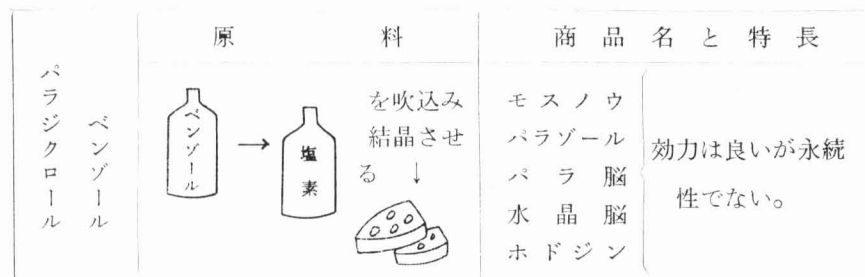 原料
商品名と特長
パラジクロール
ベンゾール
ベンゾール
→
塩素
を吹込み
結晶させ
る ↓
モスノウ
パラゾール
パラ脳
水晶脳
ホドジン
効力は良いが永続
性でない。